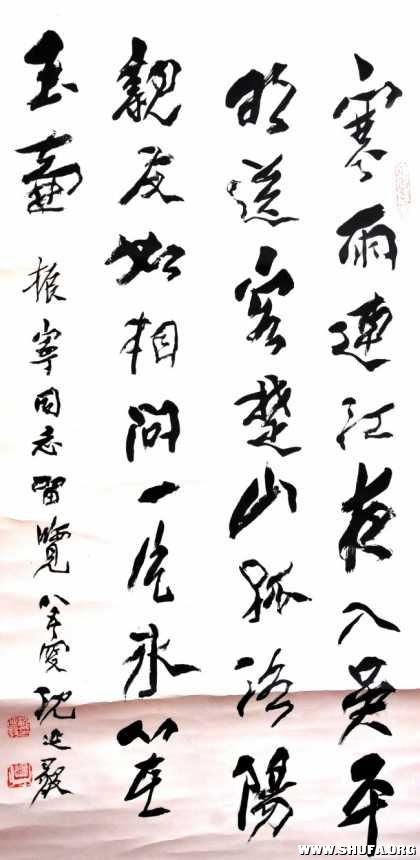 寒雨連江夜入吳平
明送客楚山孤洛陽
親友如相問一片冰心在
玉壺 振寧同志留覽 沈延毅
WWW.SHUFA.ORG